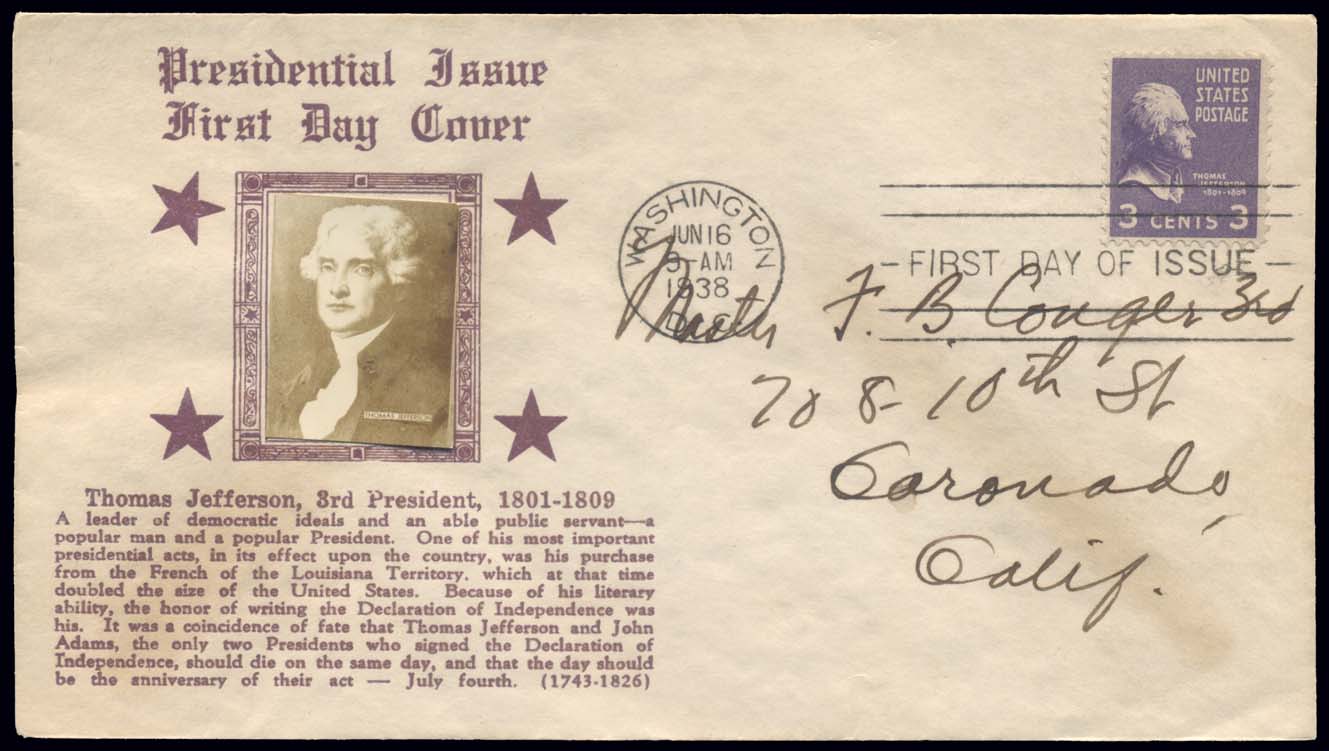 Presidential Issue
First Day Cover
THOMAS JEFFERSON
Thomas Jefferson, 3rd President, 1801-1809
A leader of democratic ideals and an able public servant—a
popular man and a popular President. One of his most important
presidential acts, in its effect upon the country, was his purchase
from the French of the Louisiana Territory, which at that time
doubled the size of the United States. Because of his literary
ability, the honor of writing the Declaration of Independence was
his. It was a coincidence of fate that Thomas Jefferson and John
Adams, the only two Presidents who signed the Declaration of
Independence, should die on the same day, and that the day should
be the anniversary of their act — July fourth. (1743-1826)
UNITED
STATES
POSTAGE
THOMAS
JEFFERSON
1801-1809
3 CENTS 3
WASHINGTON
JUN 16
9-AM
1938
D.C.
-FIRST DAY OF ISSUE-
Master F. B. Conger 3rd
708-10th St
Coronado,
Calif.